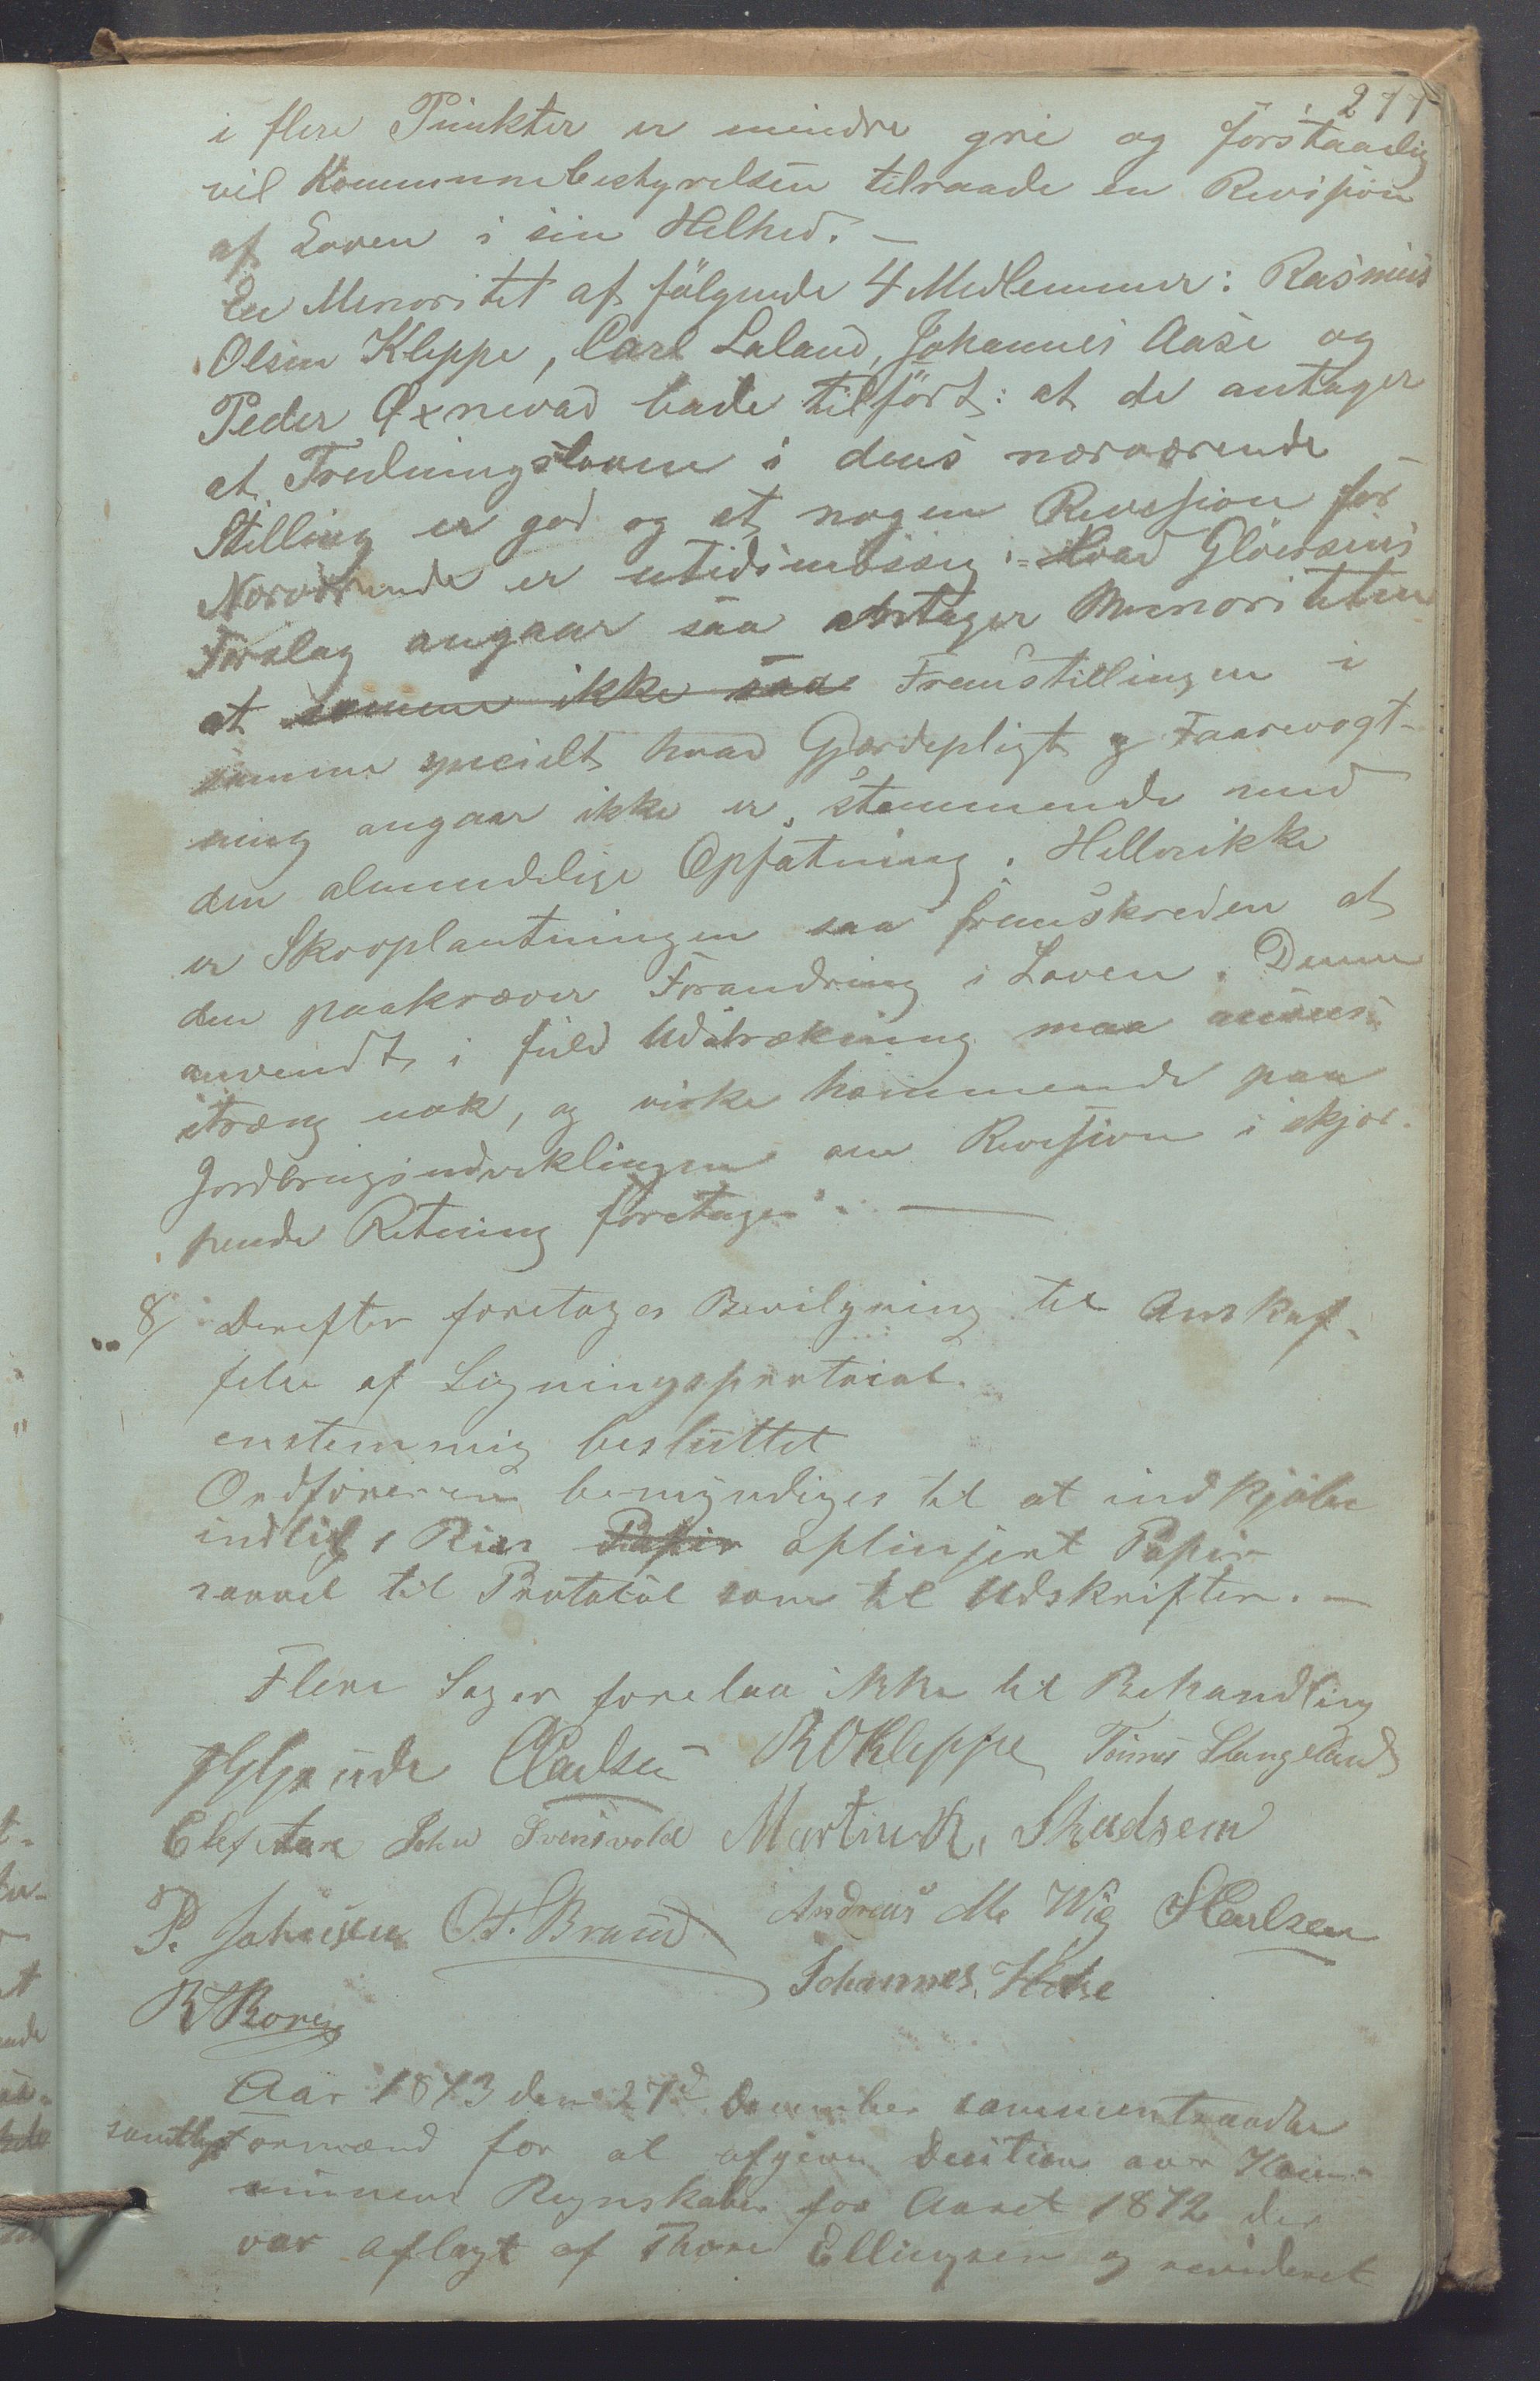 277
i flere Punkter er mindre grei og forstaaelig
vil Kommunebestyrelsen tilraade en Revision
af Loven i sin Helhed. —
En Menoritet af følgende 4 Medlemmer: Rasmus
Olsen Kleppe, Carl Laland, Johannes Aase og
Peder Oxnevad bade tilført: at de antager
at Fredningsloven i dens nærværende
Stilling er god og at nogen Revesion for
Nærværende er utidsmæssig. = Hvad Gloersens
Forslag angaar saa antager Menoriteten
at samme ikke saa Fremstillingen i
samme specielt hvad Gjærdepligt og Faarevogt-
ning angaar ikke er stemmende med
den almindelige Opfatning. Hellerikke
er Skovplantningen saa fremskreden at
den paakræver Forandring i Loven. Denne
anvendt i fuld Udstrækning maa ansees
stræng nok, og virke hæmmende paa
Jordbrugsudviklingen om Revesion i skjær-
pende Retning foretages. —
8/ Derefter foretages Bevilgning til Anskaf-
felse af Ligningsprotocol.
enstemmig besluttet
Ordføreren bemyndiges til at indkjøbe
indtil 1 Ries Papir oplinjert Papir
saavel til Protocol som til Udskrifter. —
Flere Sager forelaa ikke til Behandling
CCarlsen ROKleppe Tønnes Stangeland
Elef Aase John Svensvold Martin K. Skadsem
P. Johnsen O. T. Braud Andreas M Wig SCarlsen
Johannes Aase
R Bore
Aar 1873 den 27d December sammentraadte
samtlige Formænd for at afgive Decition over Kom-
munens Regnskaber for Aaret 1872 der
var aflagt af Thore Ellingsen og revideret